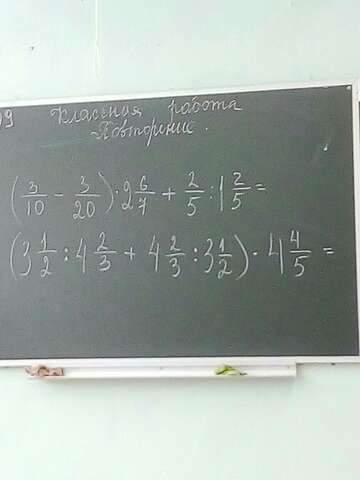 09
Классная работа
Повторение.
(3/10 - 3/20) · 2 6/7 + 2/5 : 1 2/5 =
(3 1/2 : 4 2/3 + 4 2/3 : 3 1/2) · 4 4/5 =